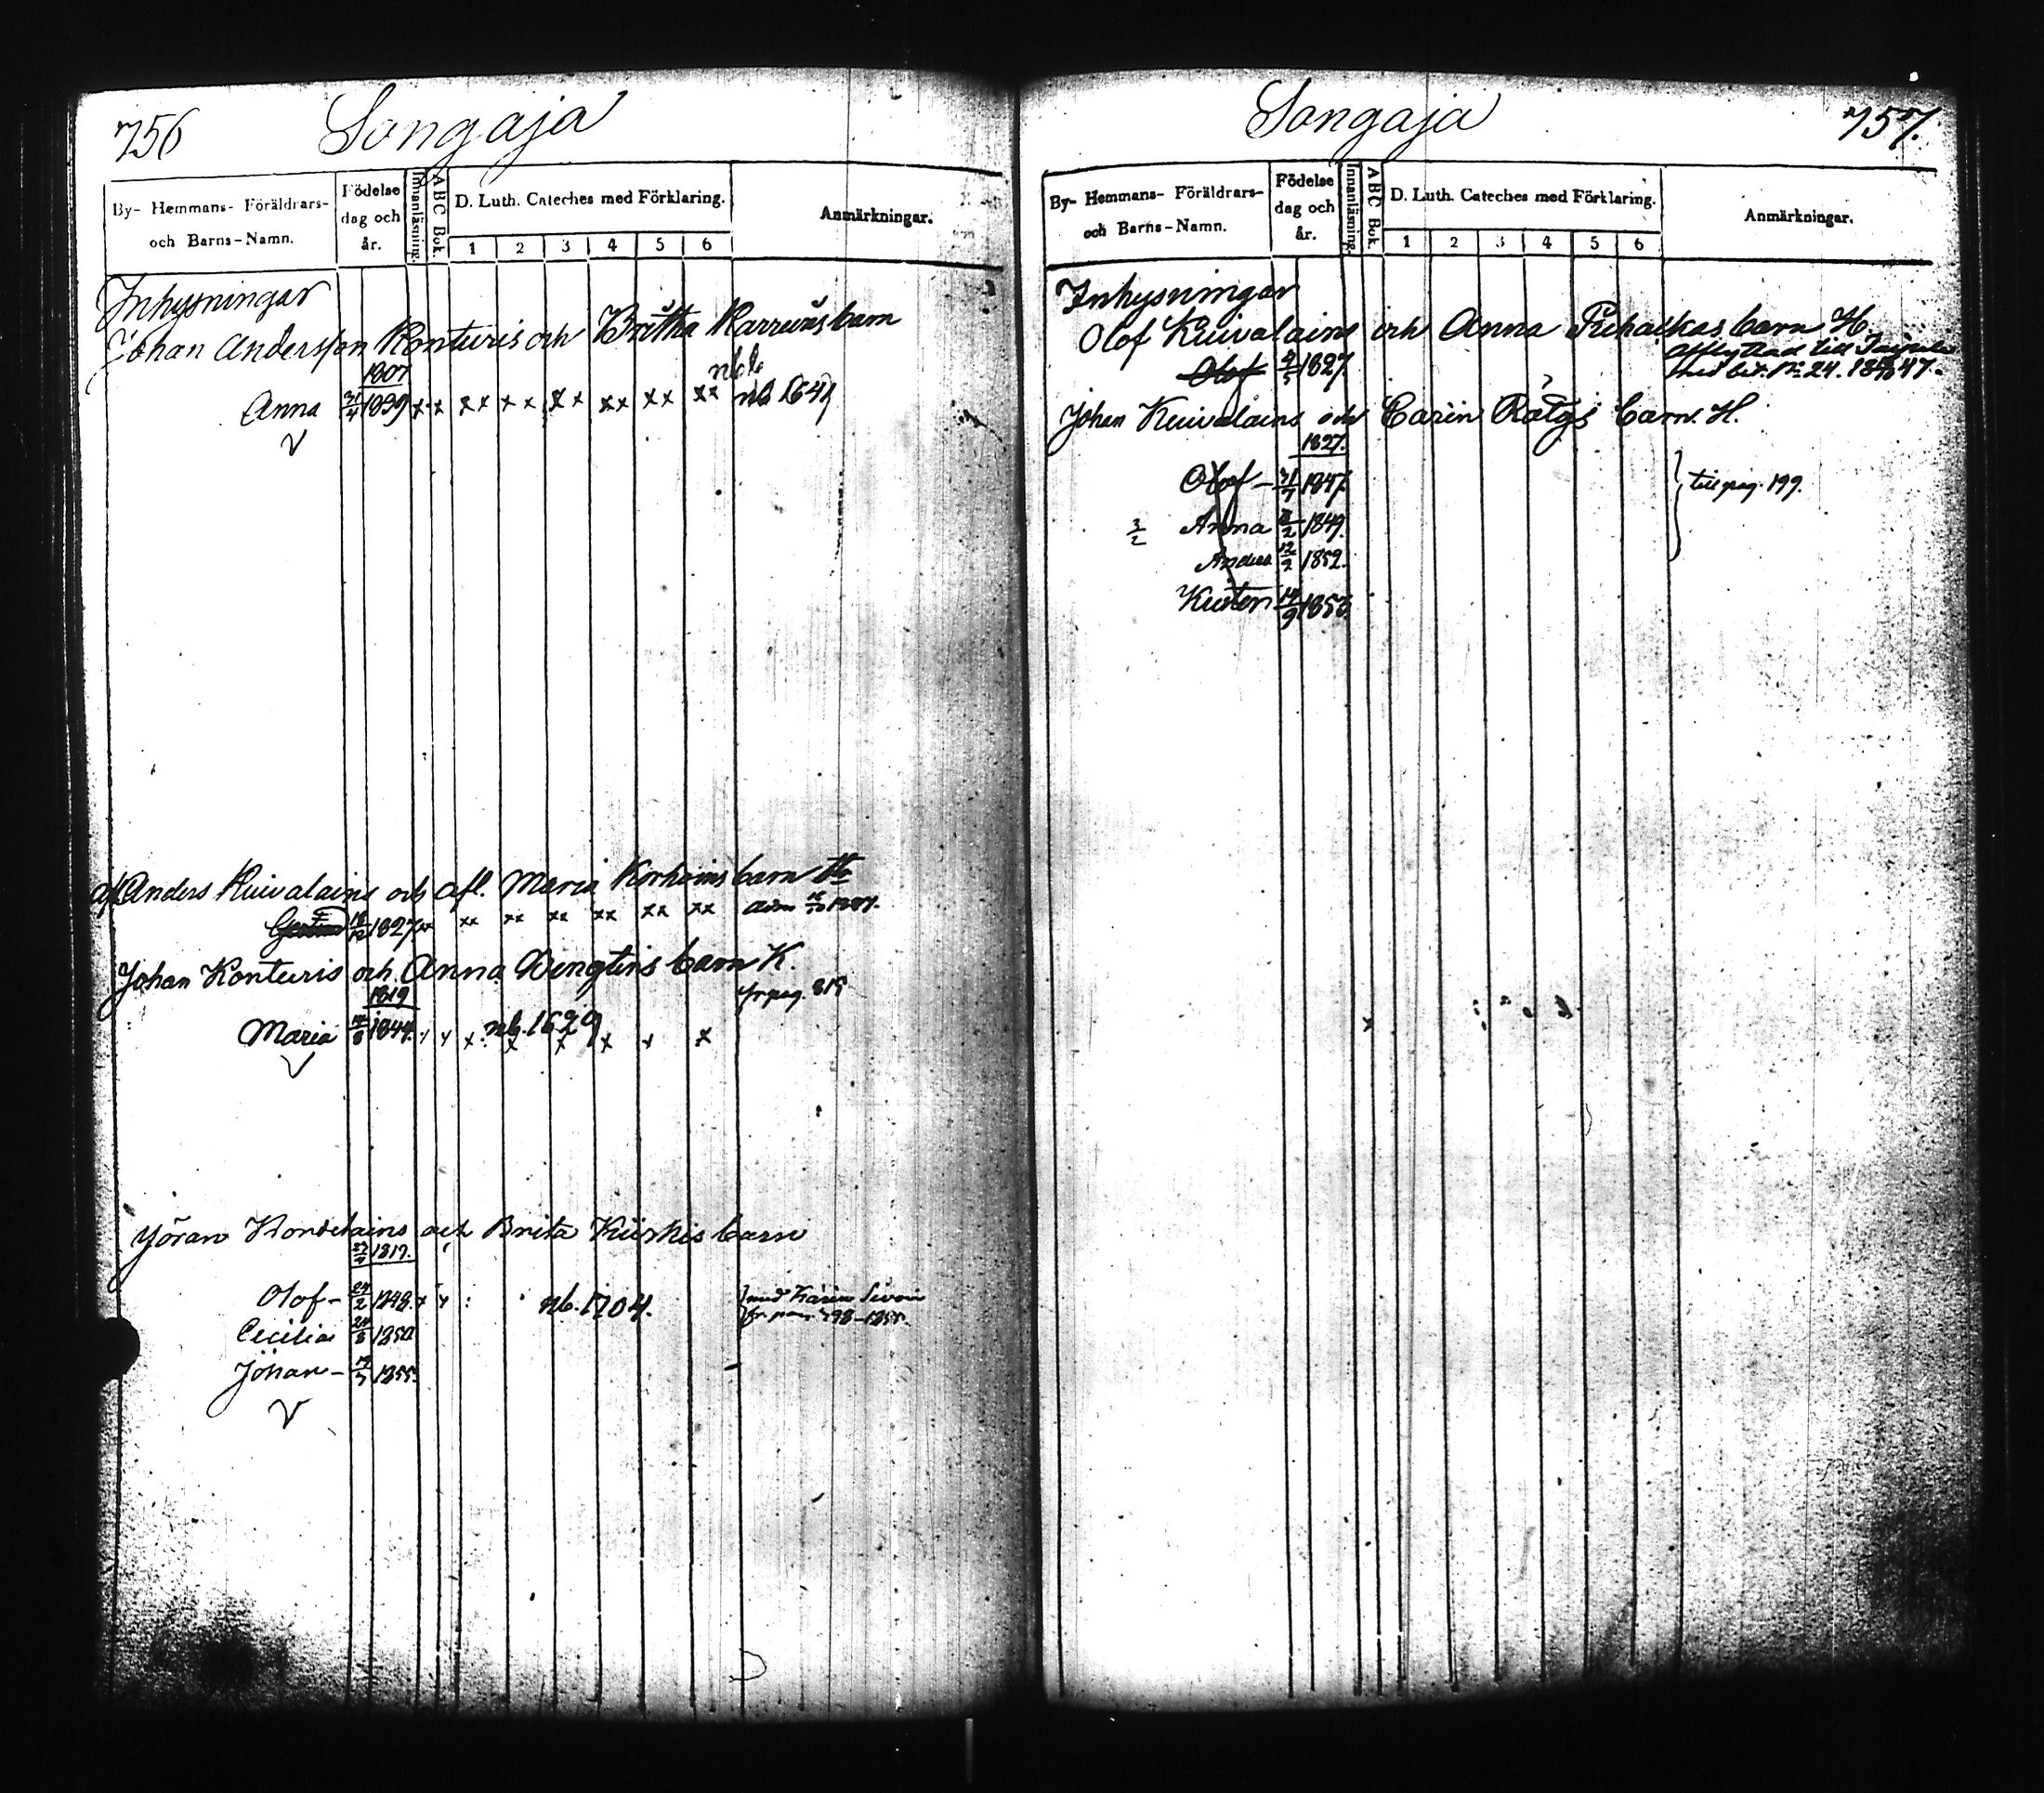 756 Songaja
By- Hemmans- Föräldrars- och Barns-Namn. Födelse dag och år. Innanläsning. ABC Bok. D. Luth. Cateches med Förklaring. 1 2 3 4 5 6 Anmärkningar.
Inhysningar
Johan Andersson Konturis och Britha Karvinens barn
1807
Anna 1839 x x xx xx xx xx xx xx nb 1641
V
Anders Kuivalains och afl. Maria Korhoins barn
1827 xx xx xx xx xx xx
Johan Konturis och Anna Bengtins barn K.
1819 fr pag. 815
Maria 1844 nb. 1629 x x x x x
V
Jöran Kondelains och Brita Kiiskis barn
27/4 1817.
Olof - 24/2 1848. x nb. 1704. med
Cecilia 1850
Johan - 1855.
V
Songaja 757.
By- Hemmans- Föräldrars- och Barns-Namn. Födelse dag och år. Innanläsning. ABC Bok. D. Luth. Cateches med Förklaring. 1 2 3 4 5 6 Anmärkningar.
Inhysningar
Olof Kuivalains och Anna Puhakkas barn H
Olof 4/5 1827 afflyttad till
med bet. No 24. 47.
Johan Kuivalains och Carin Rätys barn. H.
1827.
Olof - 1847 till pag. 199.
3/2 Anna 1849.
Anders 1852.
Kristen 14/9 1853.